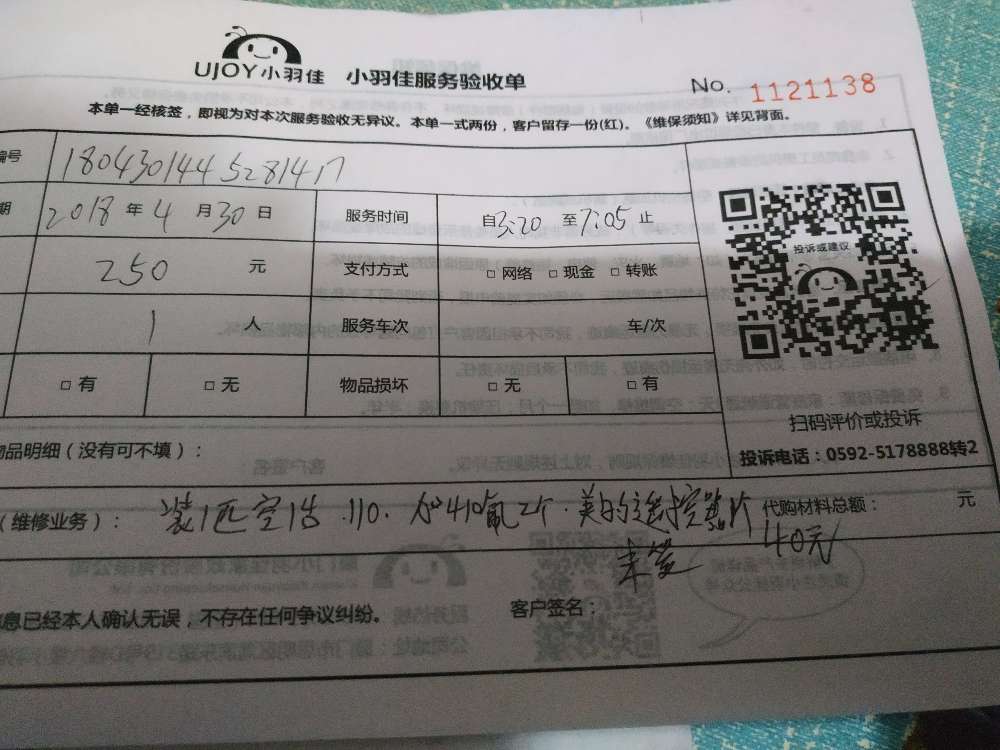 UJOY小羽佳 小羽佳服务验收单
No. 1121138
本单一经核签，即视为对本次服务验收无异议。本单一式两份，客户留存一份(红)。《维保须知》详见背面。
编号 180430144528141
期 2018 年 4 月 30 日 服务时间 自3:20 至7:05 止
250 元 支付方式 □ 网络 □ 现金 □ 转账
1 人 服务车次 车/次
□ 有 □ 无 物品损坏 □ 无 □ 有
投诉或建议
扫码评价或投诉
投诉电话：0592-5178888转2
物品明细（没有可不填）：
（维修业务）： 装1匹空 110. 加410氟2个. 美的遥控器1个
代购材料总额： 元
40元
未签
信息已经本人确认无误，不存在任何争议纠纷。 客户签名：